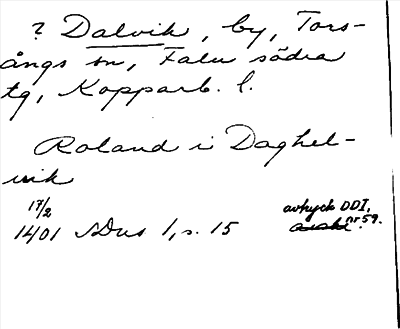 ? Dalvik, by, Tors-
ångs sn, Falu södra
tg, Kopparb. l.
Roland i Daghel-
wik
17/2
1401 SDns 1, s. 15 avtryck DDI,
nr 59.